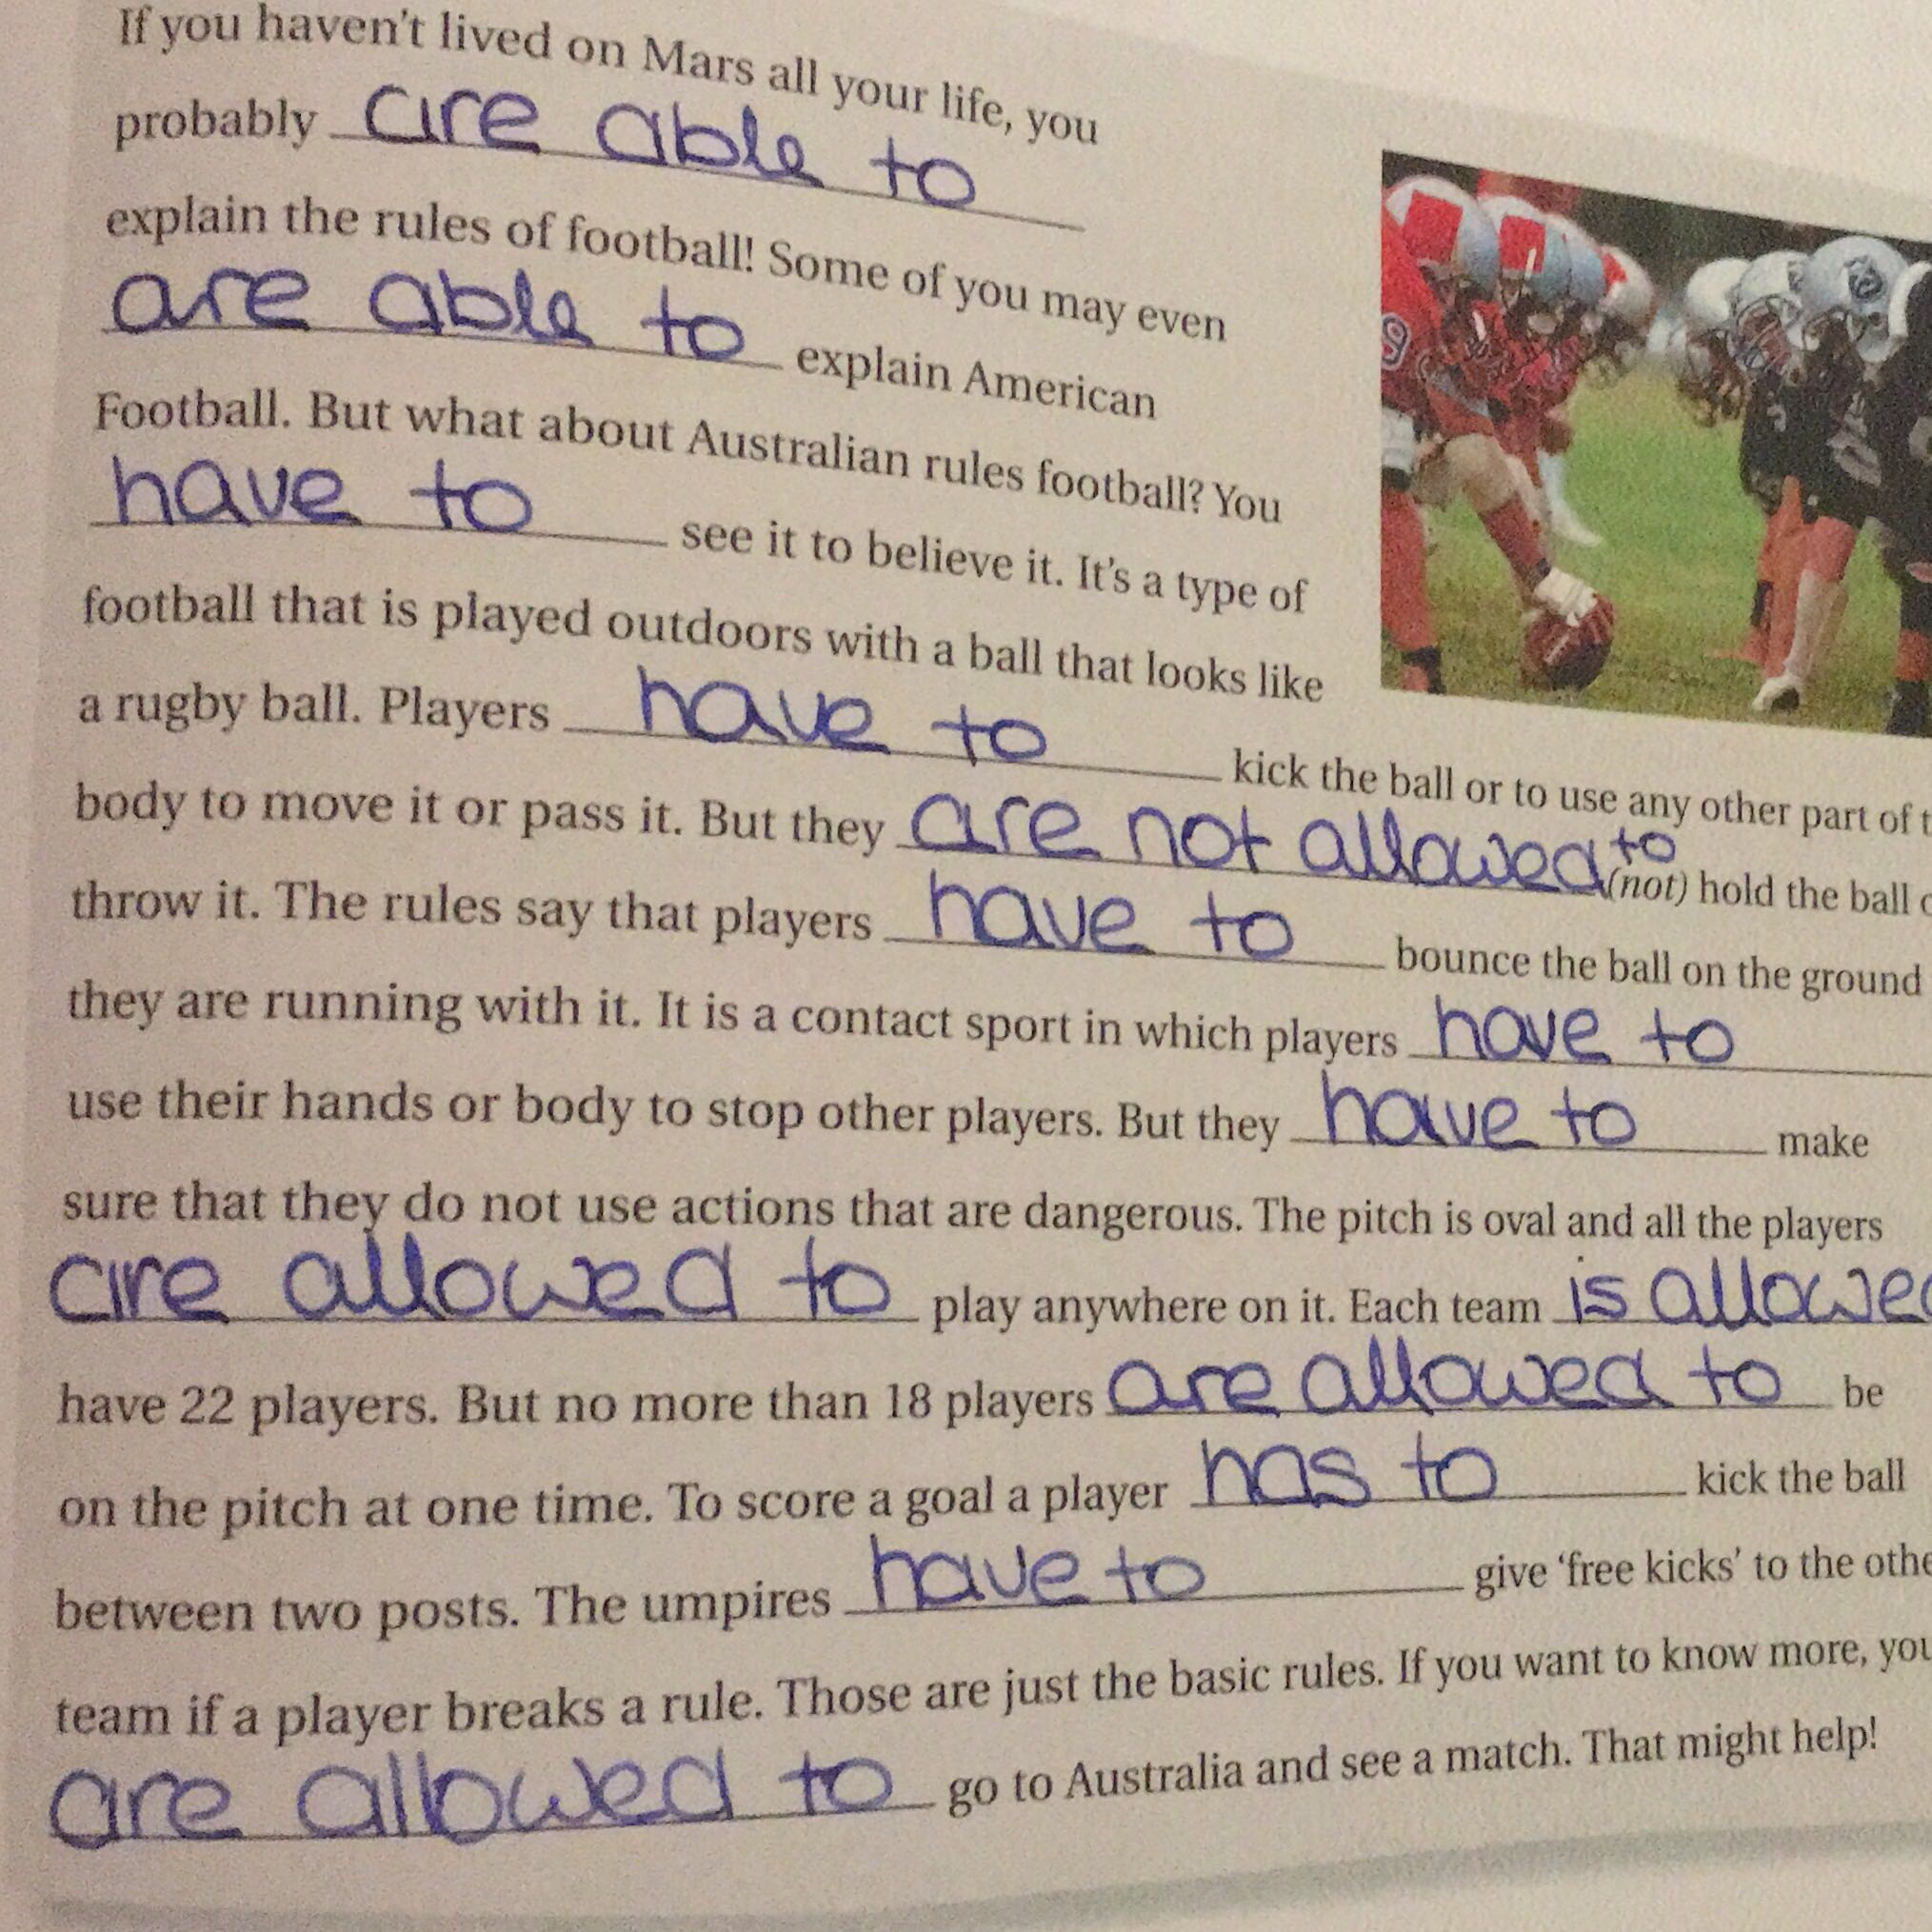 If you haven't lived on Mars all your life, you
probably are able to
explain the rules of football! Some of you may even
are able to explain American
Football. But what about Australian rules football? You
have to see it to believe it. It's a type of
football that is played outdoors with a ball that looks like
a rugby ball. Players have to kick the ball or to use any other part of
body to move it or pass it. But they are not allowed to (not) hold the ball
throw it. The rules say that players have to bounce the ball on the ground
they are running with it. It is a contact sport in which players have to
use their hands or body to stop other players. But they have to make
sure that they do not use actions that are dangerous. The pitch is oval and all the players
are allowed to play anywhere on it. Each team is allowed
have 22 players. But no more than 18 players are allowed to be
on the pitch at one time. To score a goal a player has to kick the ball
between two posts. The umpires have to give 'free kicks' to the othe
team if a player breaks a rule. Those are just the basic rules. If you want to know more, you
are allowed to go to Australia and see a match. That might help!